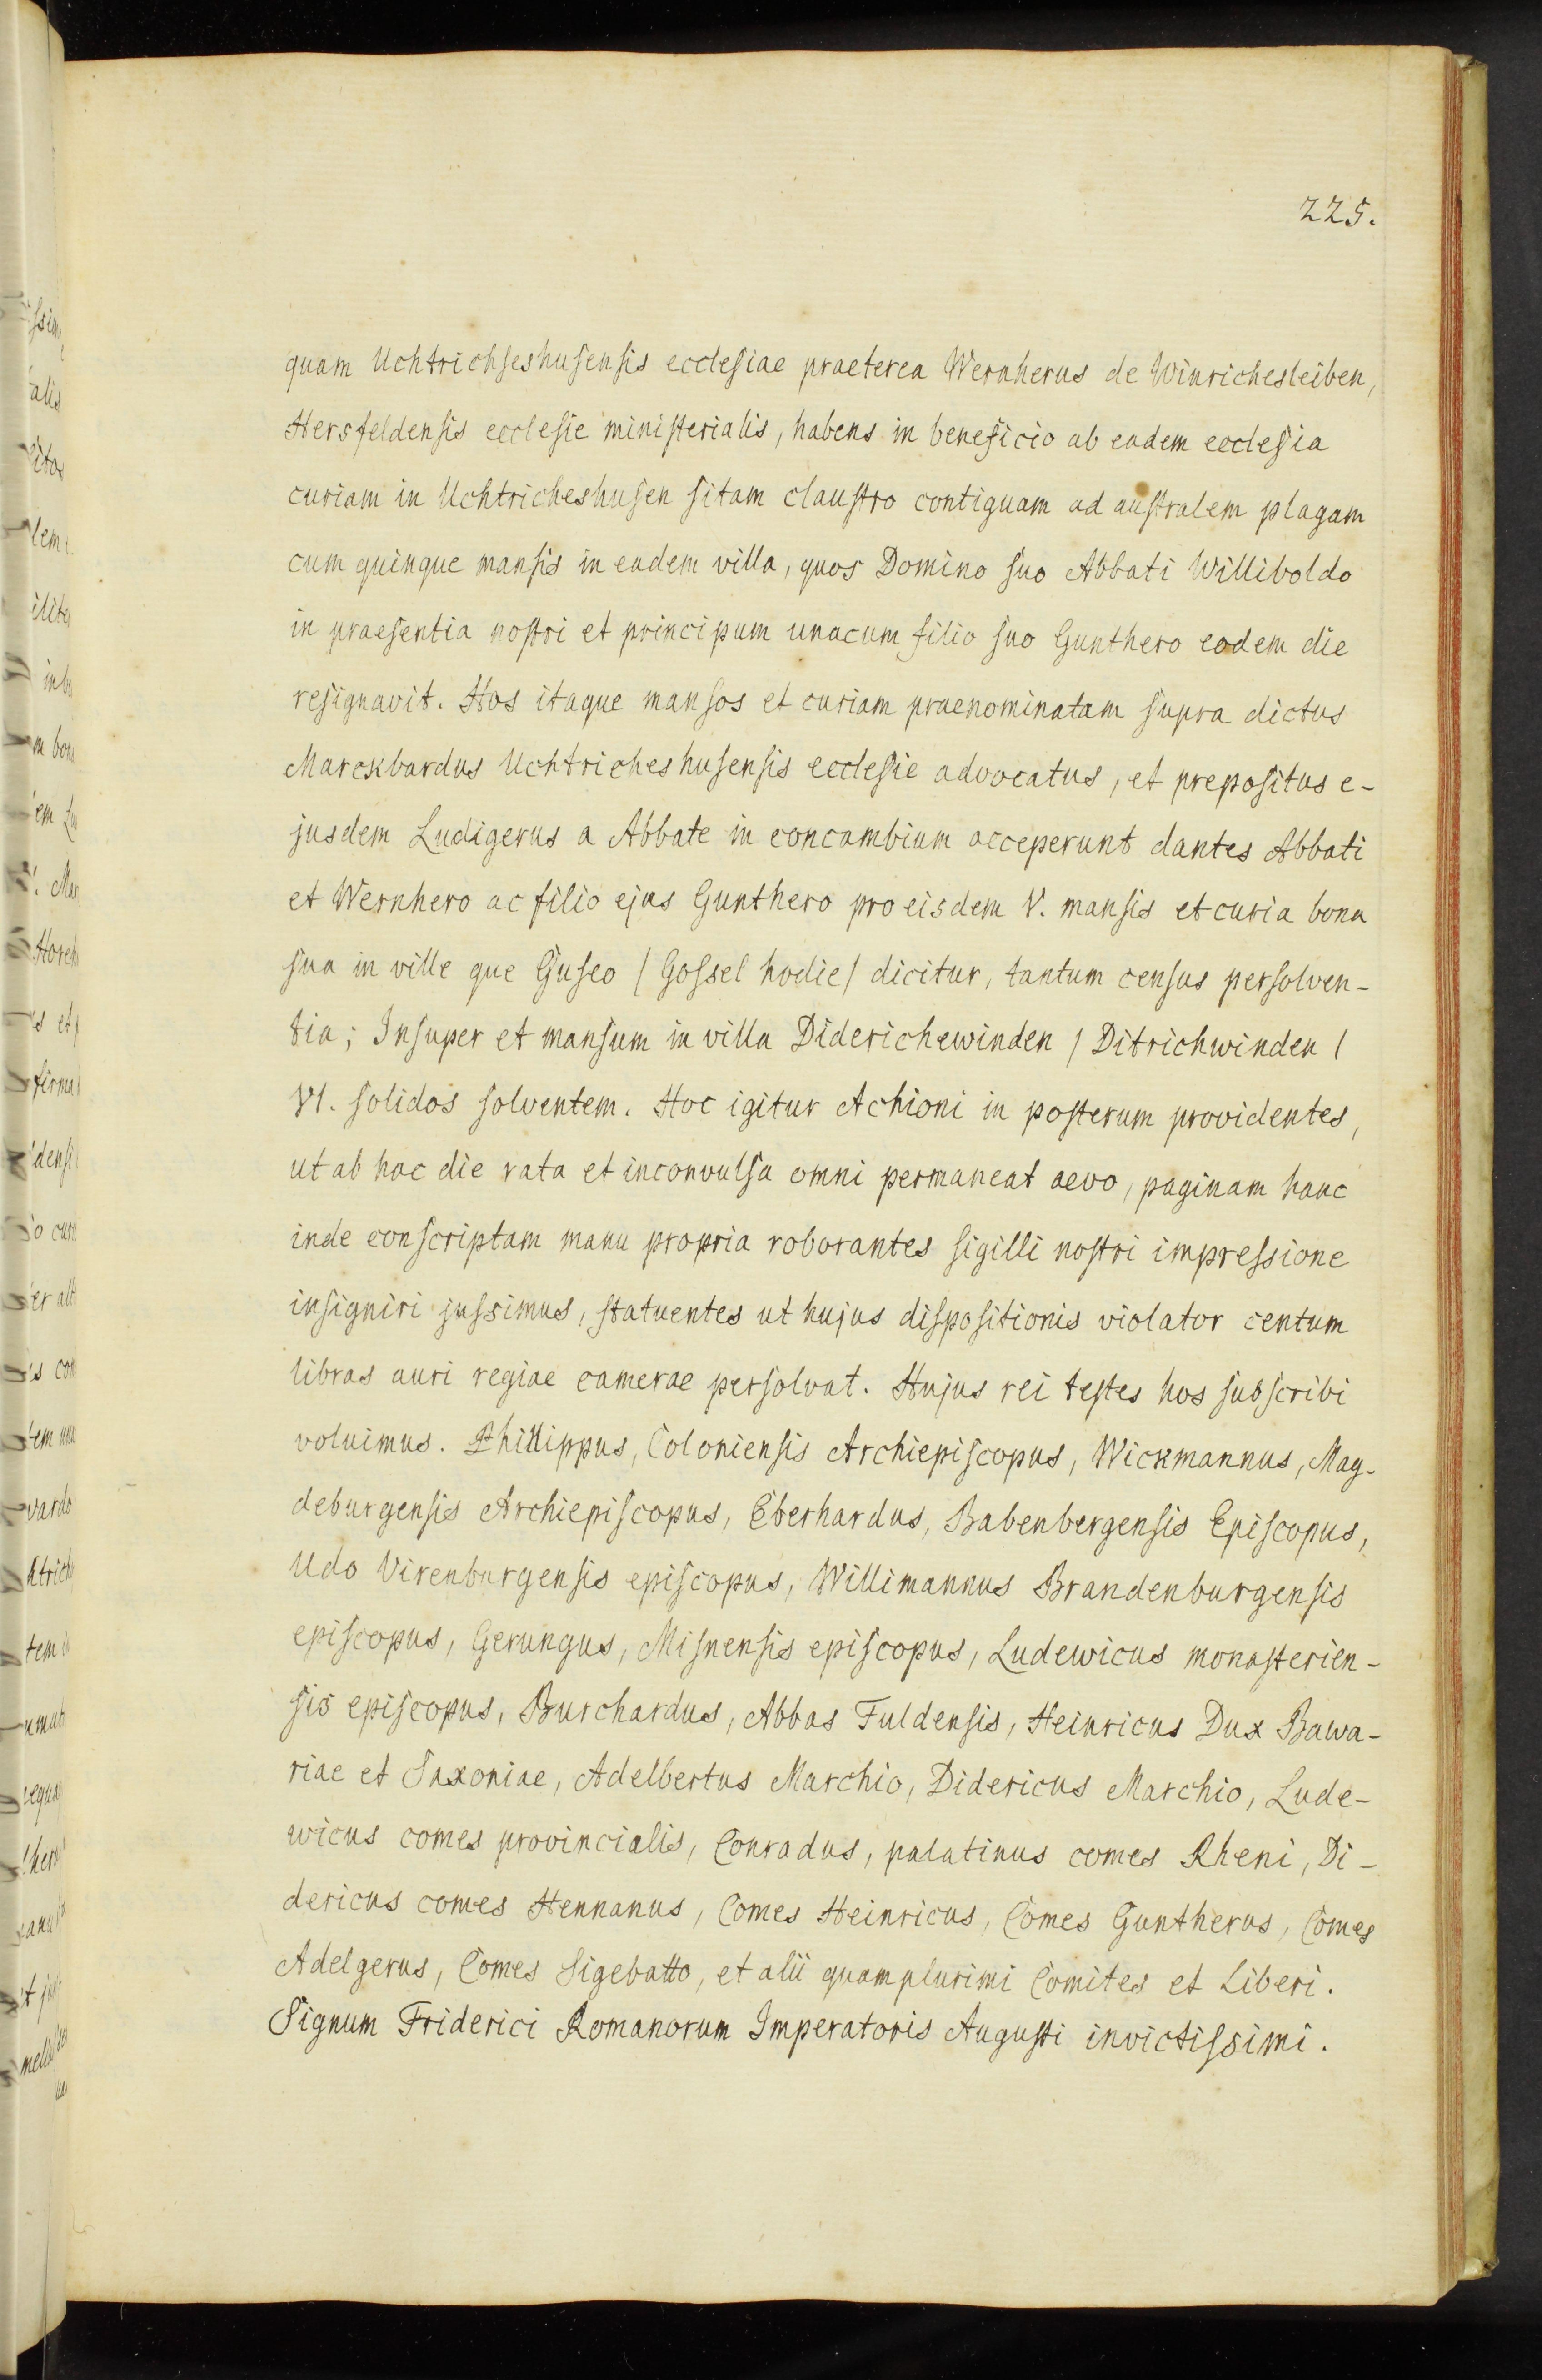 225.
quam Uchtrichseshusensis ecclesiae praeterea Wernherus de Winrichesleiben,
Hersfeldensis ecclesie ministerialis, habens in beneficio ab eadem ecclesia
curiam in Uchtricheshusen sitam claustro contiguam ad australem plagam
cum quinque mansis in eadem villa, quos Domino suo Abbati Williboldo
in praesentia nostri et principum unacum filio suo Gunthero eodem die
resignavit. Hos itaque mansos et curiam praenominatam supra dictus
Marckbardus Uchtricheshusensis ecclesie advocatus, et prepositus e-
jusdem Ludigerus a Abbate in concambium acceperunt dantes Abbati
et Wernhero ac filio ejus Gunthero pro eisdem V. mansis et curia bona
sua in ville que Guseo / Gossel hodie / dicitur, tantum census persolven-
tia; Insuper et mansum in villa Diderichewinden / Ditrichwinden /
VI. solidos solventem. Hoc igitur Achioni in posterum providentes,
ut ab hac die rata et inconvulsa omni permaneat aevo, paginam hanc
inde conscriptam manu propria roborantes sigilli nostri impressione
insigniri jussimus, statuentes ut hujus dispositionis violator centum
libras auri regiae camerae persolvat. Hujus rei testes hos subscribi
voluimus. Phillippus, Coloniensis Archiepiscopus, Wickmannus, Mag-
deburgensis Archiepiscopus, Eberhardus, Babenbergensis Episcopus,
Udo Virenburgensis episcopus, Willimannus Brandenburgensis
episcopus, Gerungus, Misnensis episcopus, Ludewicus monasterien-
sis episcopus, Burchardus, Abbas Fuldensis, Heinricus Dux Bawa-
riae et Saxoniae, Adelbertus Marchio, Didericus Marchio, Lude-
wicus comes provincialis, Conradus, palatinus comes Rheni, Di-
dericus comes Hennanus, Comes Heinricus, Comes Guntherus, Comes
Adelgerus, Comes Sigebatto, et alii quamplurimi Comites et Liberi.
Signum Friderici Romanorum Imperatoris Augusti invictissimi.